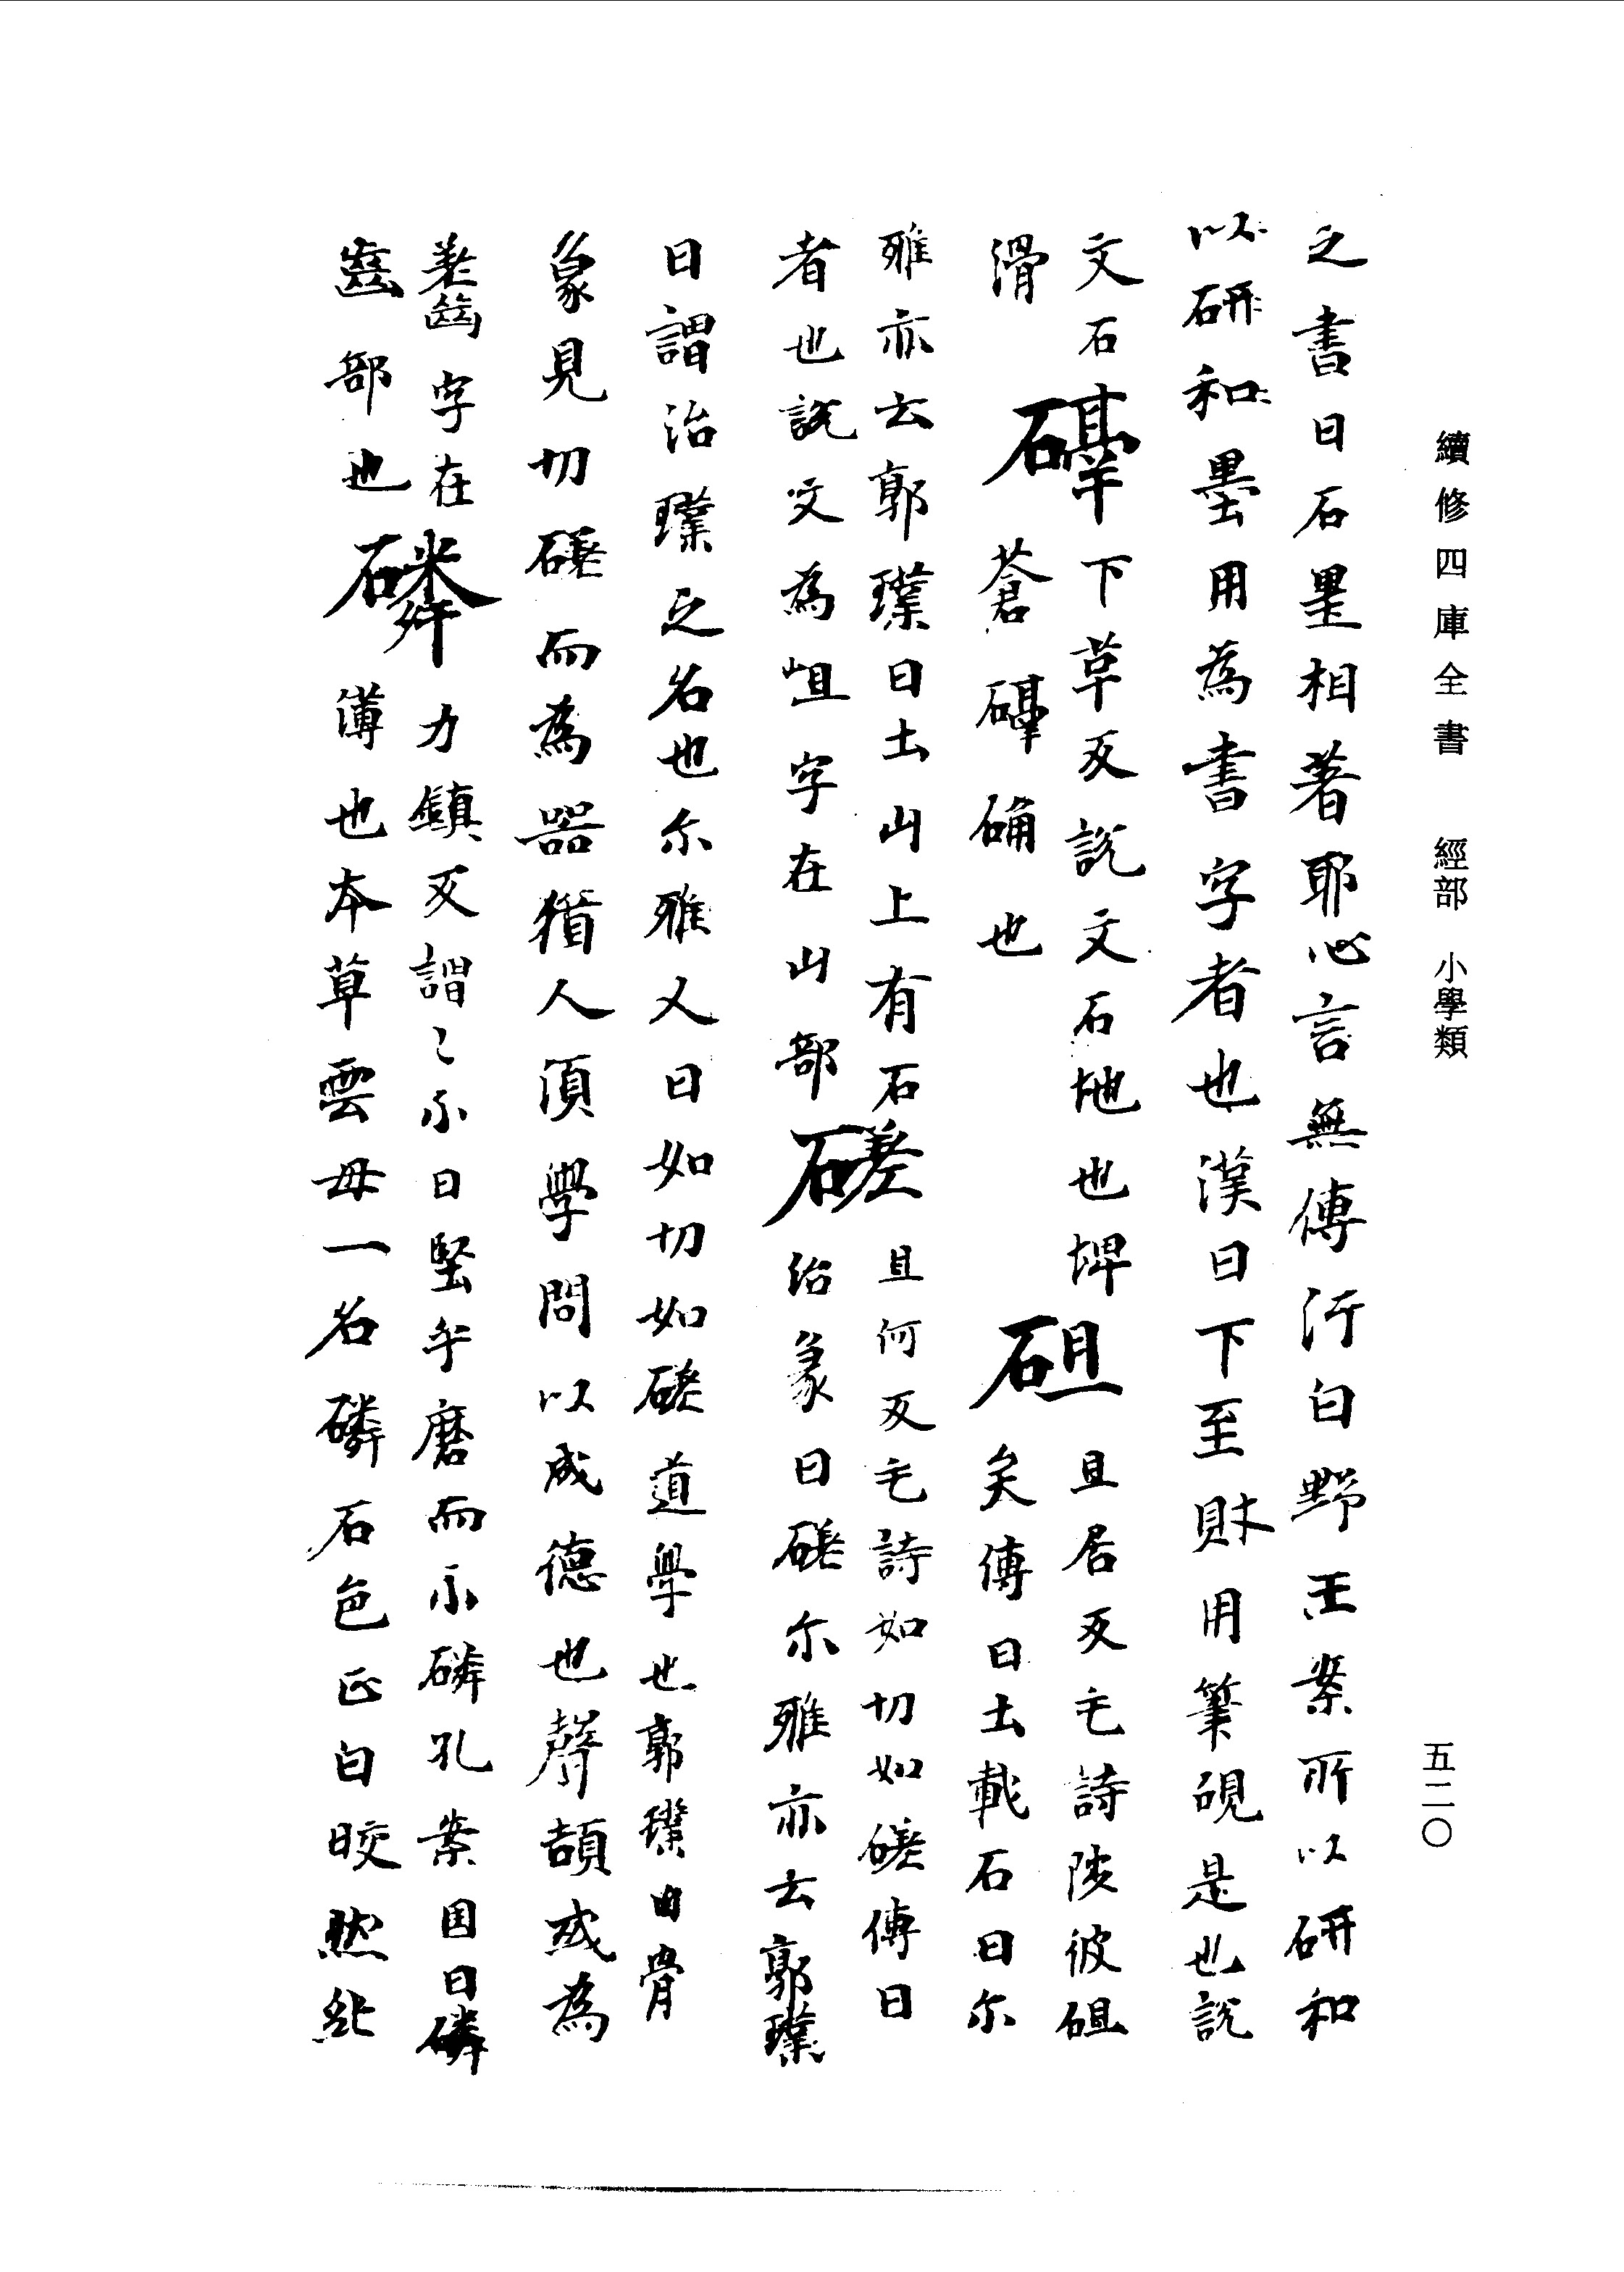 續修四庫全書 經部 小學類
五二〇
之書曰石墨相著耶心言無傳沂白野王案所以研和
以研和墨用為書字者也漢曰下至財用筆硯是也說
文石
滑
下草反說文石地也埤
蒼 确也
砠
且居反毛詩陟彼砠
矣傳曰土載石曰尒
雅亦云郭璞曰土山上有石
者也說文為岨字在山部
磋
且何反毛詩如切如磋傳曰
治象曰磋尒雅亦云郭璞
曰謂治璞之名也尒雅又曰如切如磋道學也郭璞曰骨
象見切磋而為器猶人須學問以成德也聲頡或為
字在
齒部也
磷
力鎮反謂〻不曰堅乎磨而不磷孔案国曰磷
薄也本草雲母一名磷石色正白晈然純